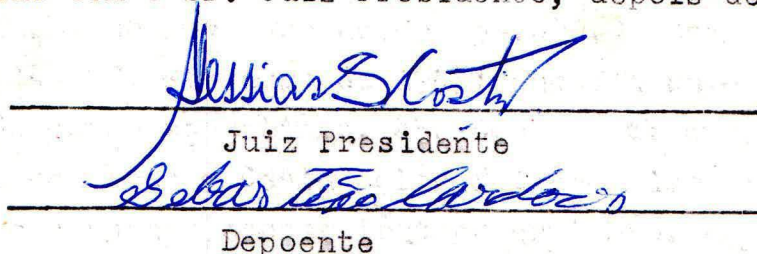 Juiz Presidente, depois de
Messias S Costa
Juiz Presidente
Sebastião Cardozo
Depoente